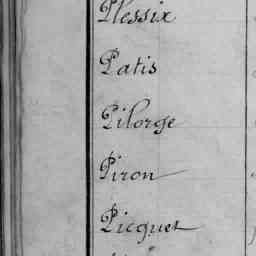 Plessix
Patis
Pilorge
Piron
Picquet